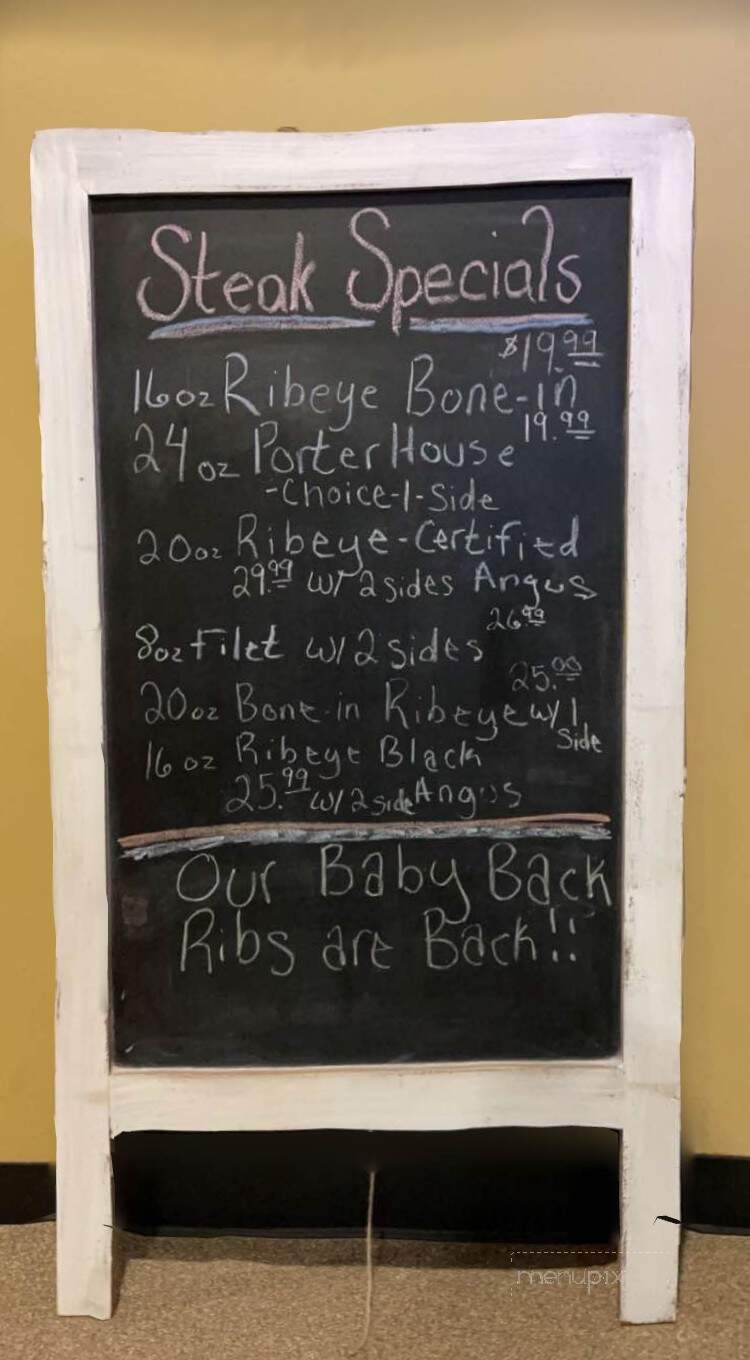 Steak Specials
$19.99
16oz Ribeye Bone-in
19.99
24oz PorterHouse
-Choice-1-Side
20oz Ribeye-Certified
29.99 w/ 2 sides Angus
26.99
8oz Filet w/ 2 sides
25.00
20oz Bone-in Ribeye w/ 1
Side
16oz Ribeye Black
25.99 w/ 2 side Angus
Our Baby Back
Ribs are Back!!
menupix